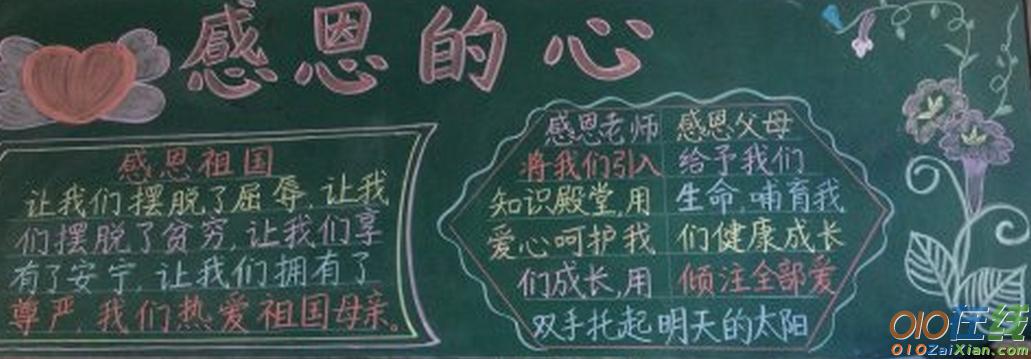 感恩的心
感恩祖国
让我们摆脱了屈辱，让我
们摆脱了贫穷，让我们享
有了安宁，让我们拥有了
尊严，我们热爱祖国母亲。
感恩老师
将我们引入
知识殿堂，用
爱心呵护我
们成长，用
双手托起
感恩父母
给予我们
生命，哺育我
们健康成长
倾注全部爱
明天的太阳
010在线
010ZaiXian.com